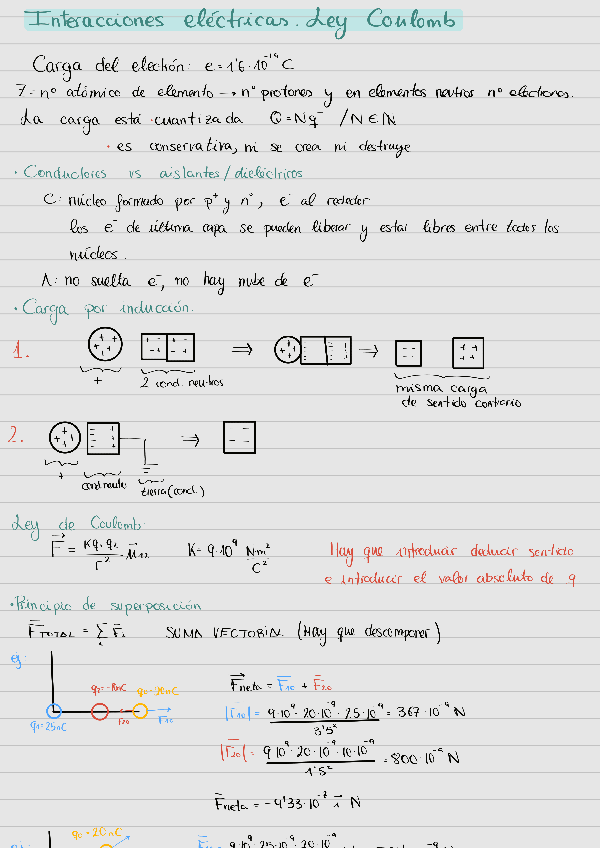 Interacciones eléctricas. Ley Coulomb
Carga del electrón: e = 1'6·10⁻¹⁹ C
Z = nº atómico de elemento → nº protones y en elementos neutros nº electrones.
La carga está · cuantizada Q = Nq⁻ / N ∈ ℕ
· es conservativa, ni se crea ni destruye
· Conductores vs aislantes/dieléctricos
C: núcleo formado por p⁺ y n°, e⁻ al rededor
los e⁻ de última capa se pueden liberar y estar libres entre todos los
núcleos.
A: no suelta e⁻, no hay nube de e⁻
· Carga por inducción.
1.
+ 2 cond. neutros
misma carga
de sentido contrario
2.
+ cond neutro tierra (cond.)
Ley de Coulomb:
F = Kq₁·q₂ / r² · μ₁₂ K = 9·10⁹ N·m² / C²
Hay que introducir deducir sentido
e introducir el valor absoluto de q
· Principio de superposición
F TOTAL = Σ Fᵢ SUMA VECTORIAL (Hay que descomponer)
ej:
q₁=25nC
F₂₀ F₁₀
Fneta = F₁₀ + F₂₀
|F₁₀| = 9·10⁹·20·10⁻⁹·25·10⁻⁹ / 3'5² = 367·10⁻⁹ N
|F₂₀| = 9·10⁹·20·10⁻⁹·10·10⁻⁹ / 1'5² = 800·10⁻⁹ N
Fneta = -4'33·10⁻⁷ i N
q₀=20nC